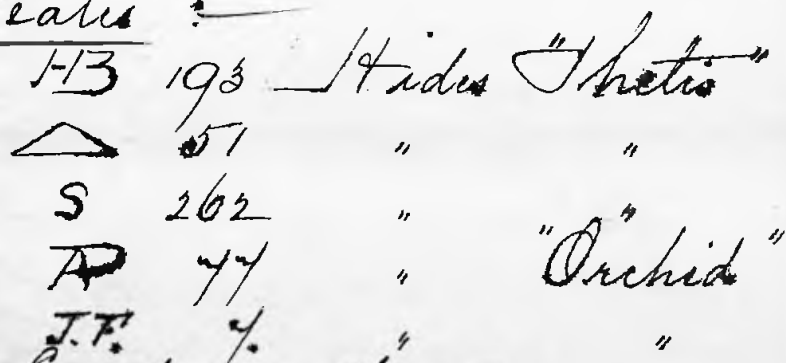 HB 193 Hides "Thetis"
51 " "
S 262 " "
AP 77 " "Orchid"
J.F. 7. " "